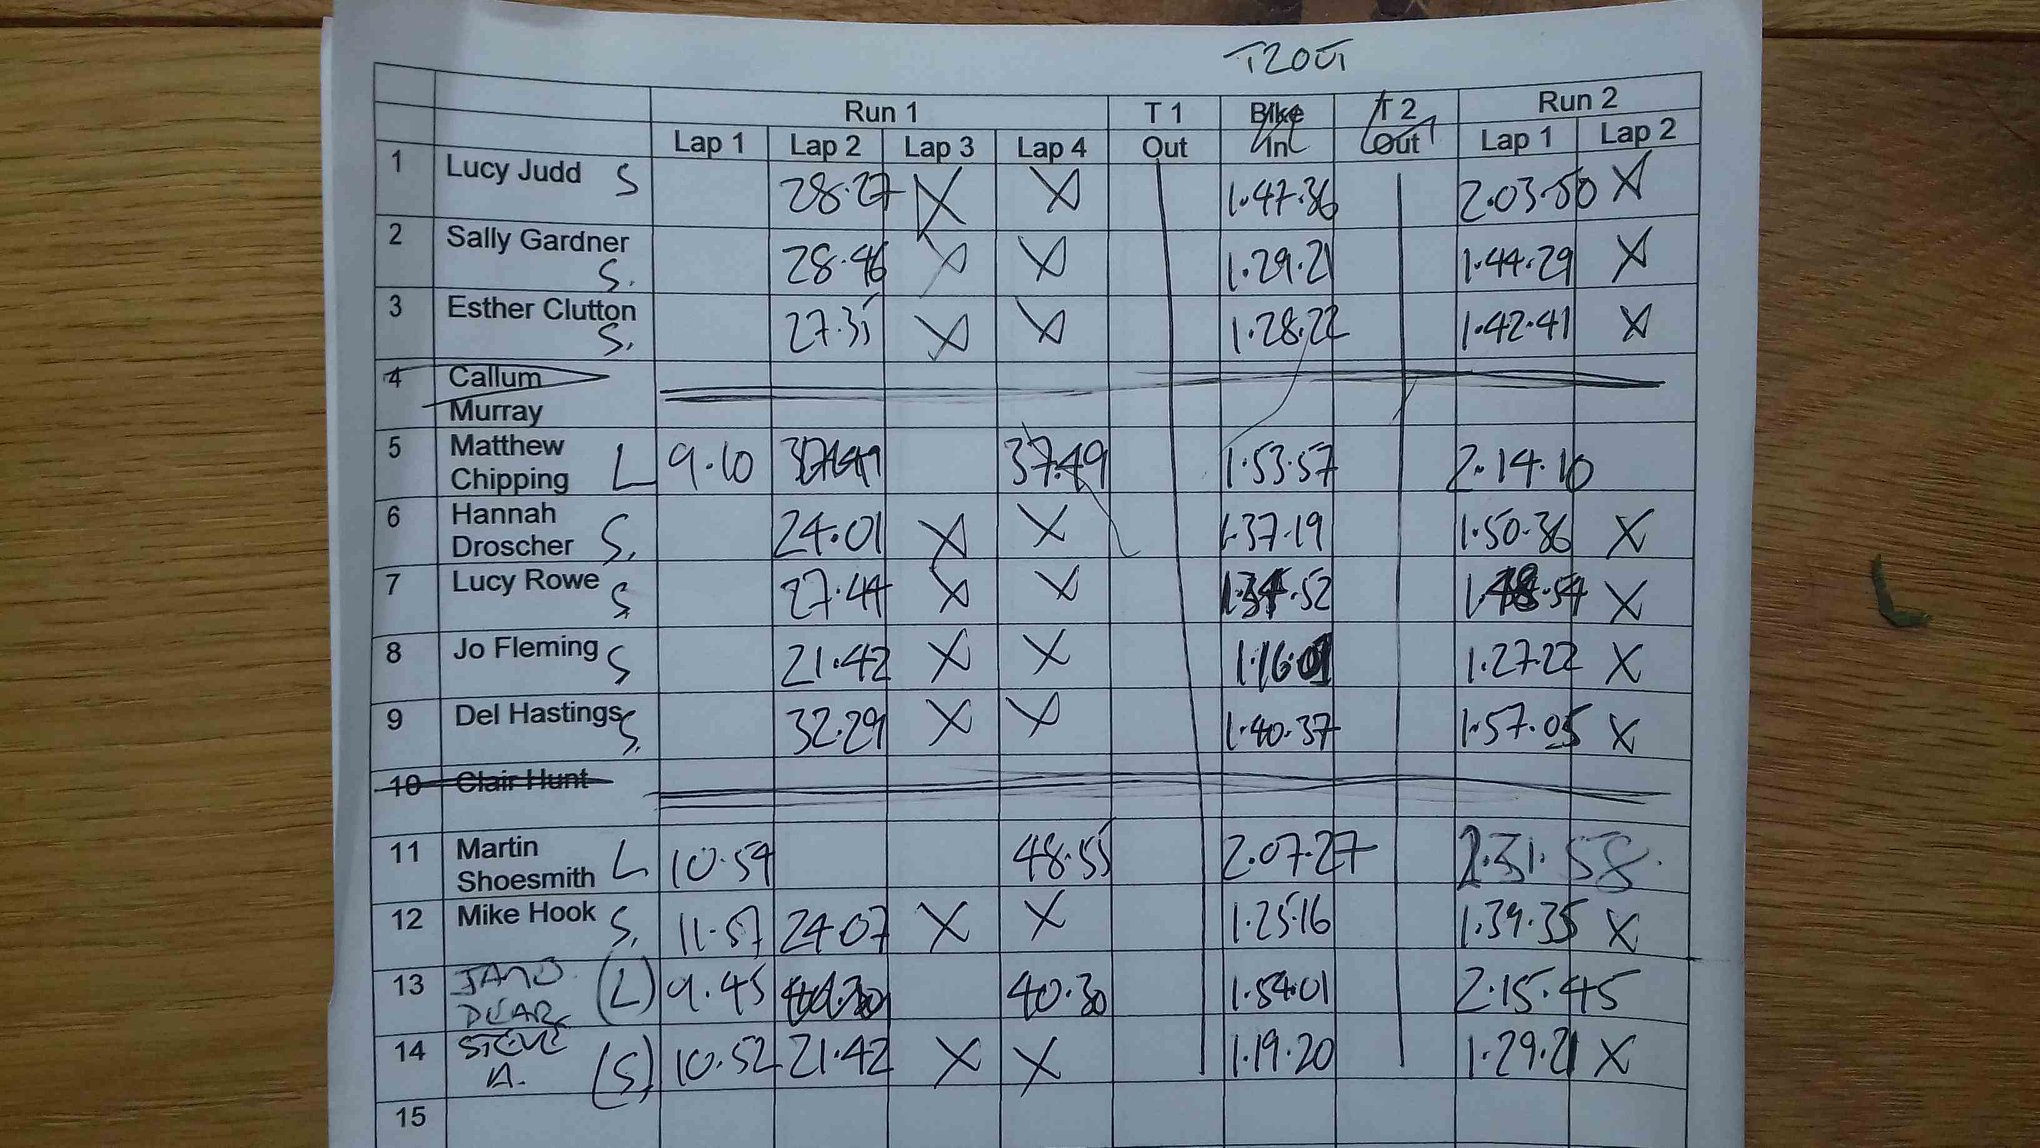 T2OUT
Run 1 T 1 Bike T 2 Run 2
Lap 1 Lap 2 Lap 3 Lap 4 Out In Out Lap 1 Lap 2
1 Lucy Judd S 28.27 X X 1.47.36 2.03.50 X
2 Sally Gardner S. 28.46 X X 1.29.21 1.44.29 X
3 Esther Clutton S. 27.35 X X 1.28.22 1.42.41 X
4 Callum
Murray
5 Matthew
Chipping L 9.10 37.49 1.53.57 2.14.10
6 Hannah
Droscher S. 24.01 X X 1.37.19 1.50.36 X
7 Lucy Rowe S 27.44 X X .52 .54 X
8 Jo Fleming S 21.42 X X 1.16.01 1.27.22 X
9 Del Hastings S. 32.29 X X 1.40.37 1.57.05 X
10 Clair Hunt
11 Martin
Shoesmith L 10.59 48.55 2.07.27 2.31.58.
12 Mike Hook S. 11.57 24.07 X X 1.25.16 1.39.35 X
13 (L) 9.45 40.30 1.54.01 2.15.45
14 STEVE
A. (S) 10.52 21.42 X X 1.19.20 1.29.21 X
15